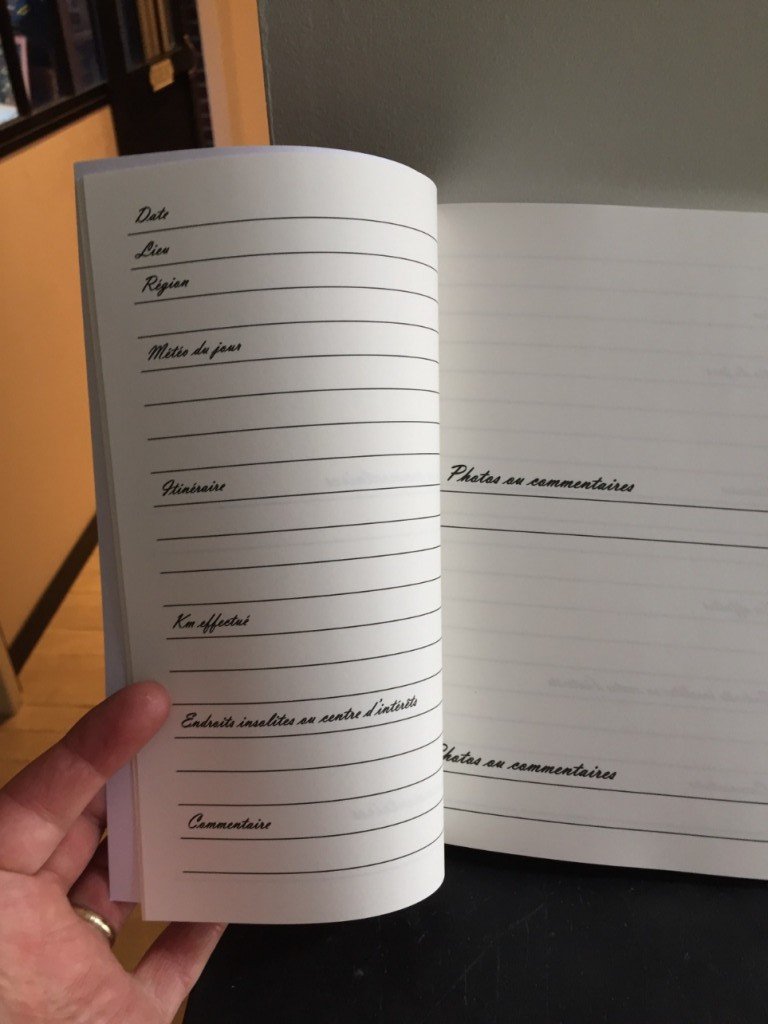 Date
Lieu
Région
Météo du jour
Itinéraire
Km effectué
Endroits insolites ou centre d'intérêts
Commentaire
Photos ou commentaires
Photos ou commentaires